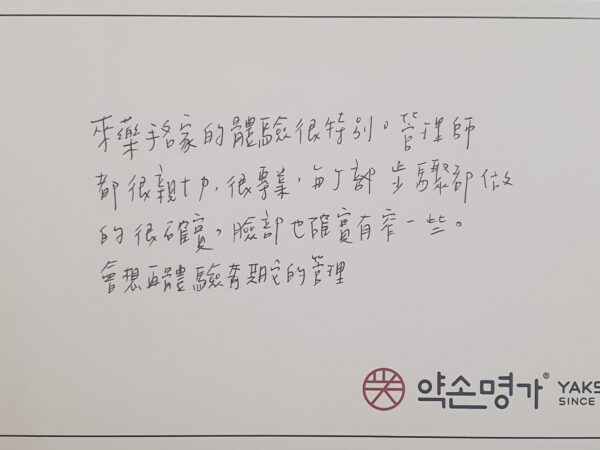 來藥手名家的體驗很特別。管理師
都很親切,很專業,每 步驟都做
的很確實,臉部也確實有窄一些。
會想再體驗 的管理
약손명가® YAKS
SINCE